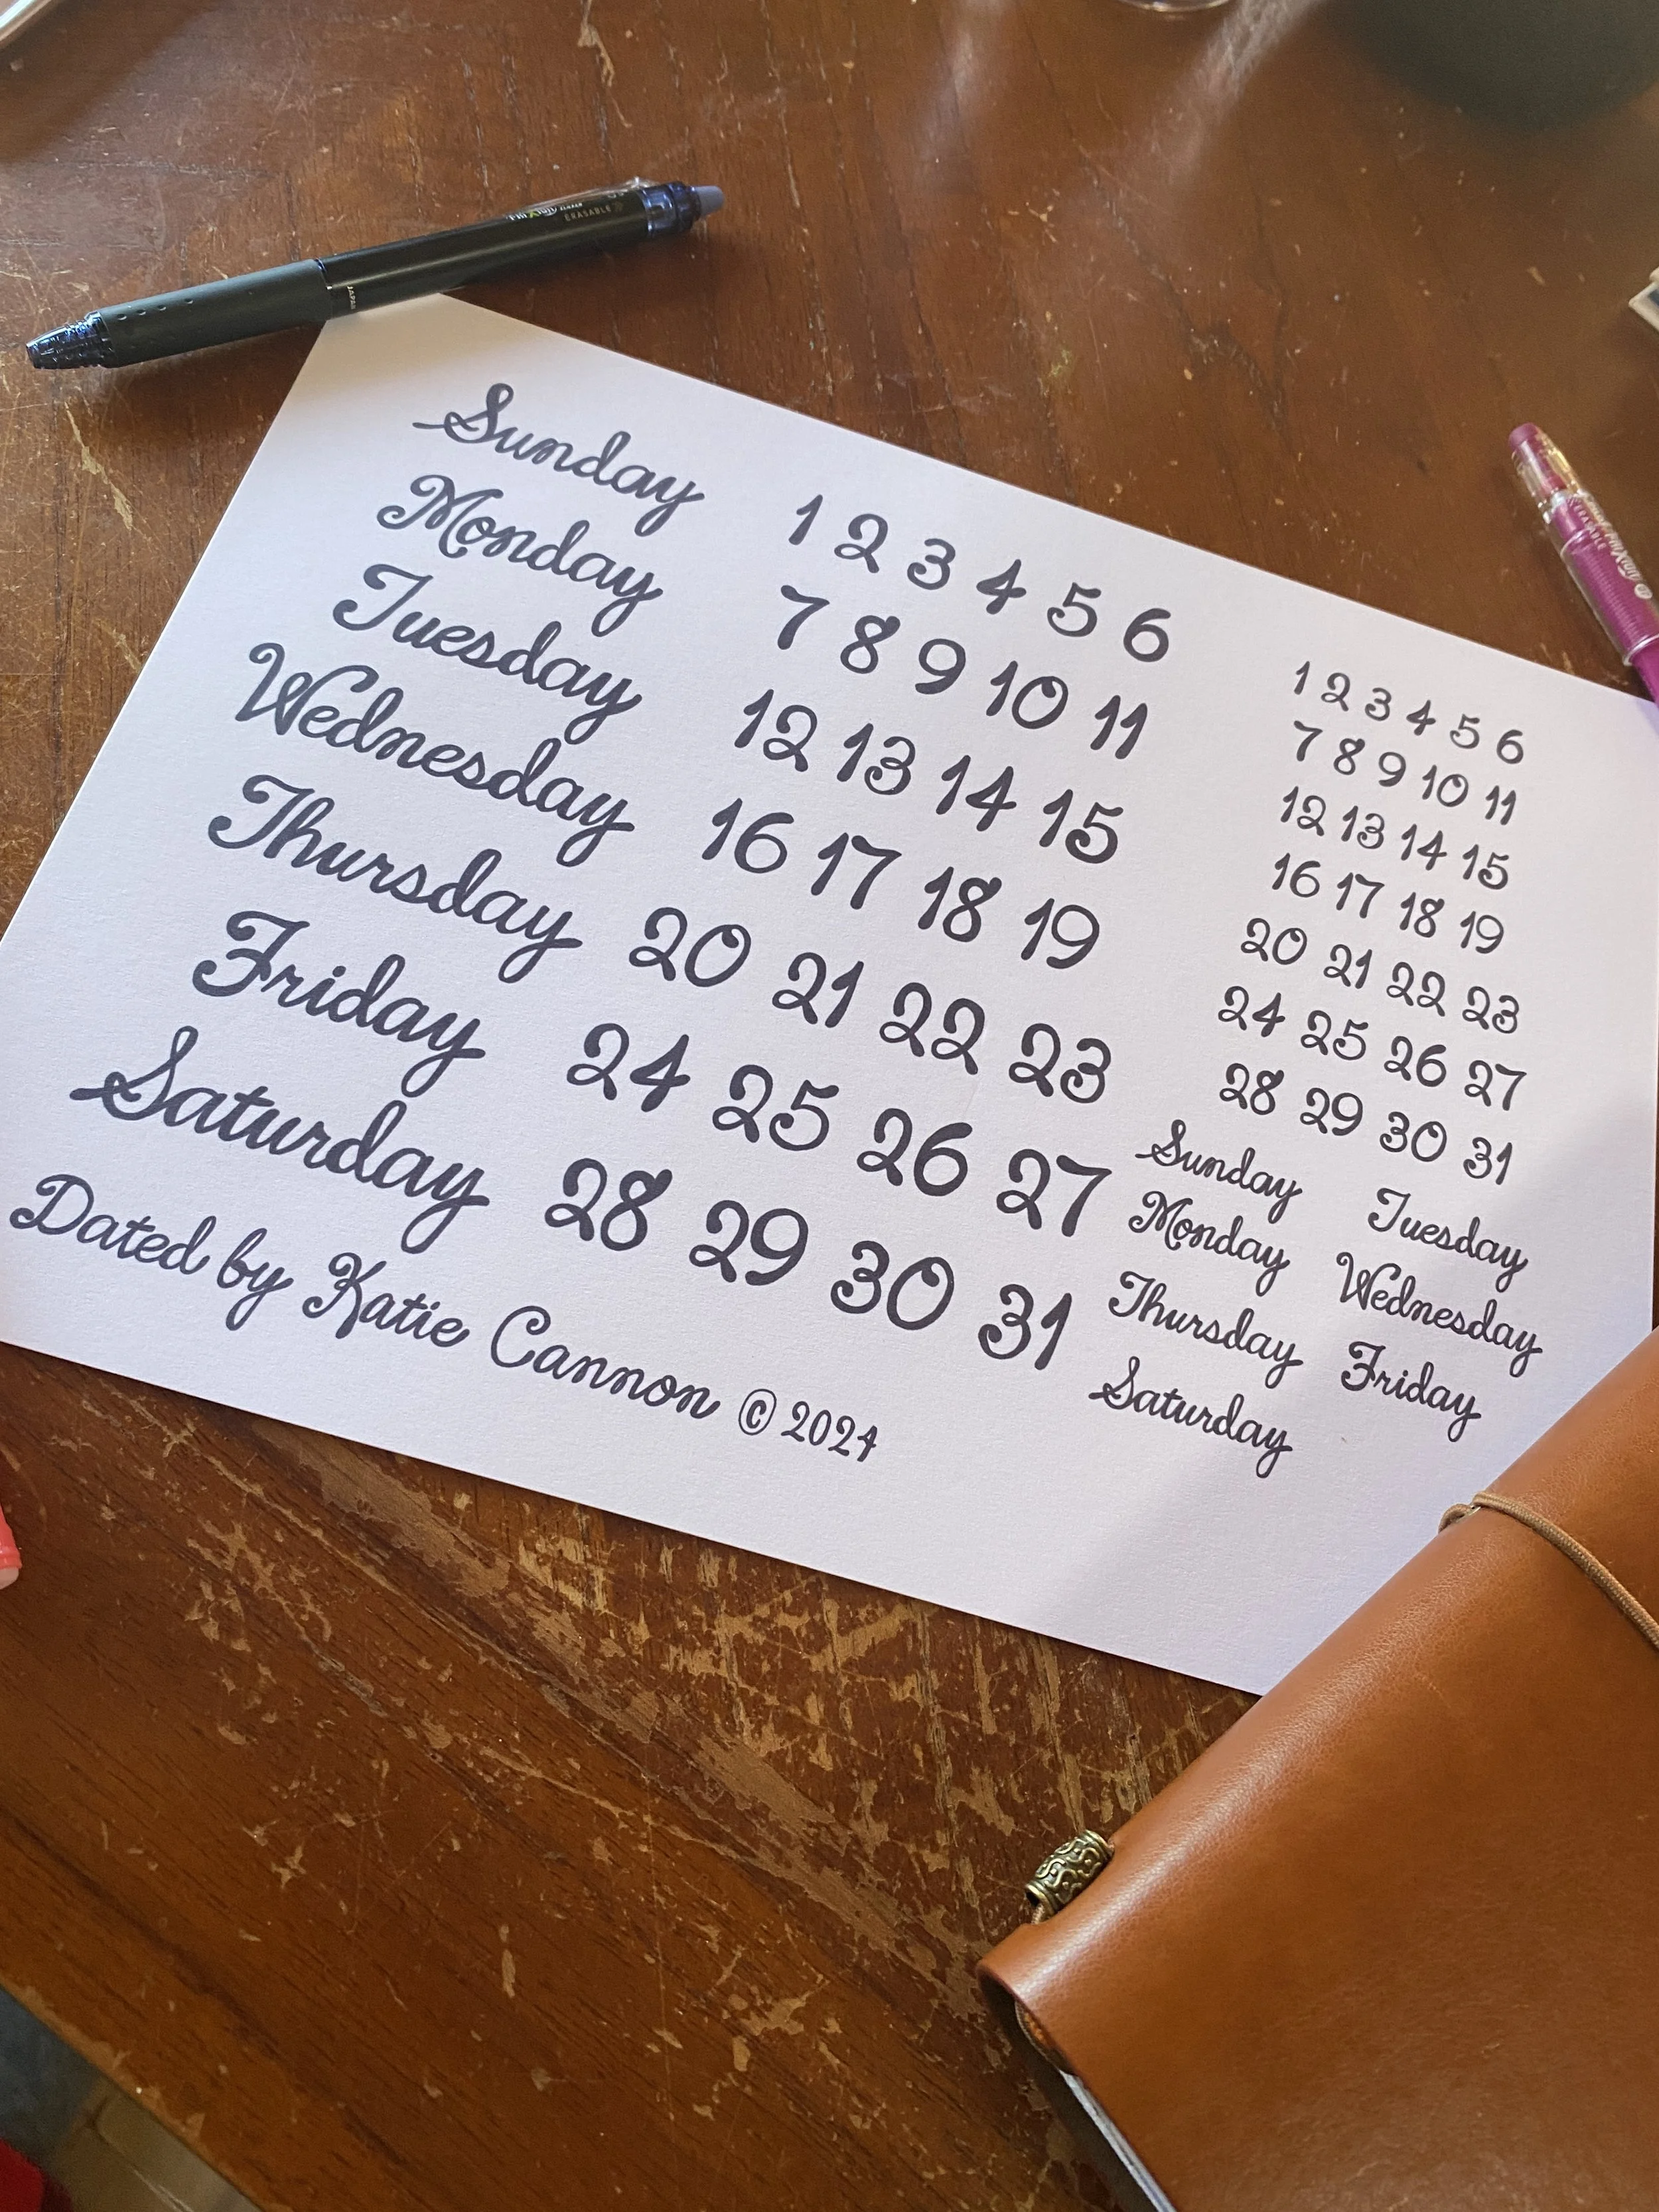 FRIXION
ERASABLE
JAPAN
Sunday
Monday
Tuesday
Wednesday
Thursday
Friday
Saturday
1 2 3 4 5 6
7 8 9 10 11
12 13 14 15
16 17 18 19
20 21 22 23
24 25 26 27
28 29 30 31
1 2 3 4 5 6
7 8 9 10 11
12 13 14 15
16 17 18 19
20 21 22 23
24 25 26 27
28 29 30 31
Sunday Tuesday
Monday Wednesday
Thursday Friday
Saturday
Dated by Katie Cannon © 2024